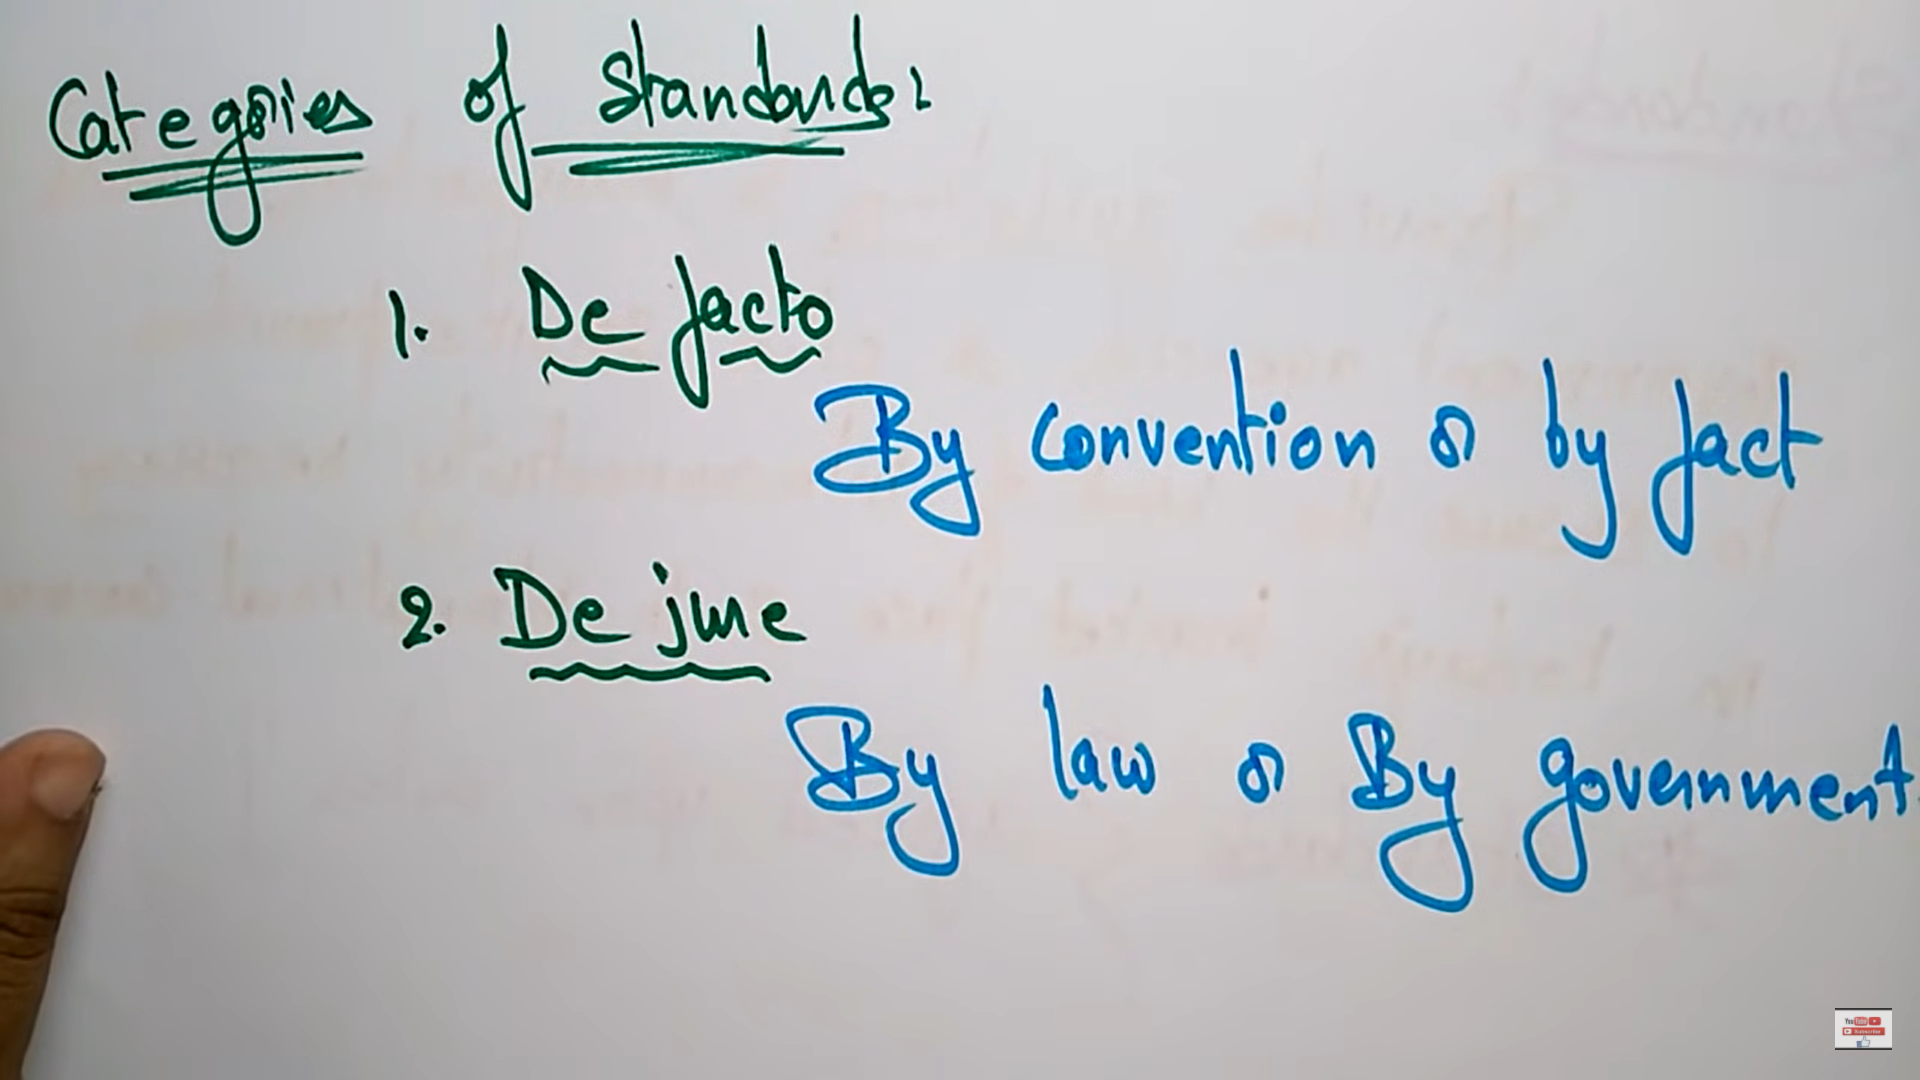 Categories of Standards:
1. De facto
By convention or by fact
2. De jure
By law or By government.
YouTube
Subscribe